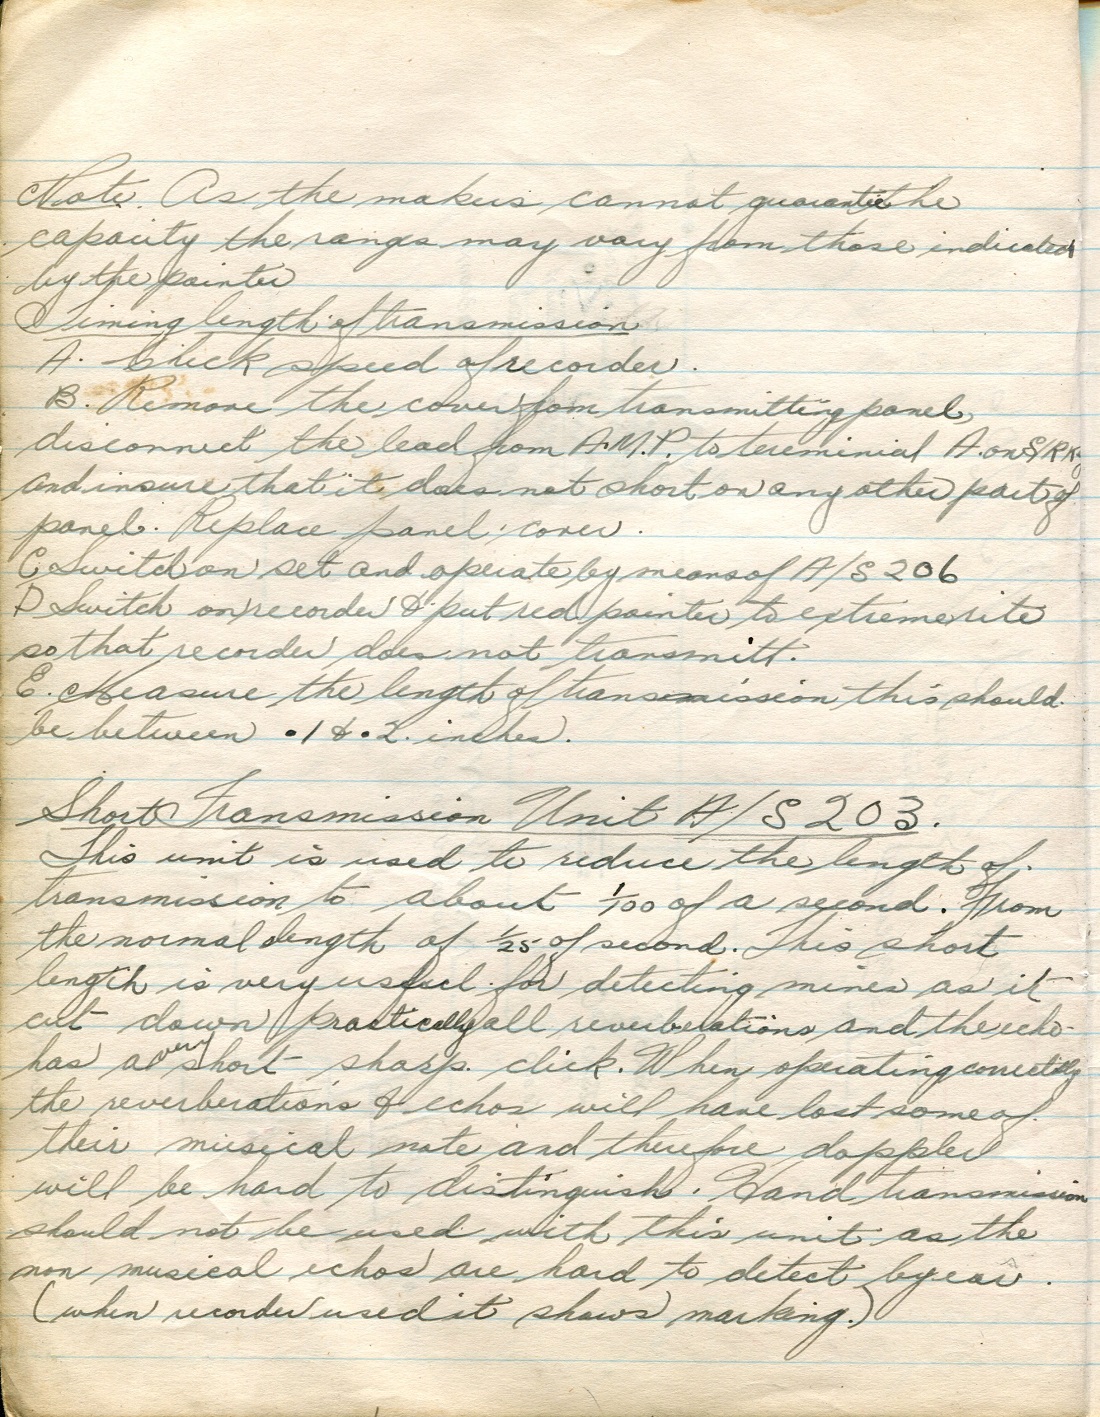 Note. As the makers cannot guarantie the
capacity the ranges may vary from those indicated
by the pointer
Timing length of transmission
A. Check speed of recorder.
B. Remove the cover from transmitting panel,
disconnect the lead from A.M.P. to tereminial A. on S/RK
and insure that it does not short on any other part of
panel. Replace panel cover.
C Switch on set and operate by means of A/S 206
D Switch on recorder & put red pointer to extreme rite
so that recorder does not transmitt.
E. Measure the length of transmission this should
be between .1 & .2 inches.
Short Transmission Unit A/S 203.
This unit is used to reduce the length of
transmission to about 1/100 of a second. From
the normal length of 1/25 of second. This short
length is very useful for detecting mines as it
cut down practically all reverberations and the echo
has a very short sharp click. When operating correctily
the reverberations & echos will have lost some of
their musical note and therefore doppler
will be hard to distinguish. Hand transmission
should not be used with this unit as the
non musical echos are hard to detect by ear.
(when recorder used it shows marking.)